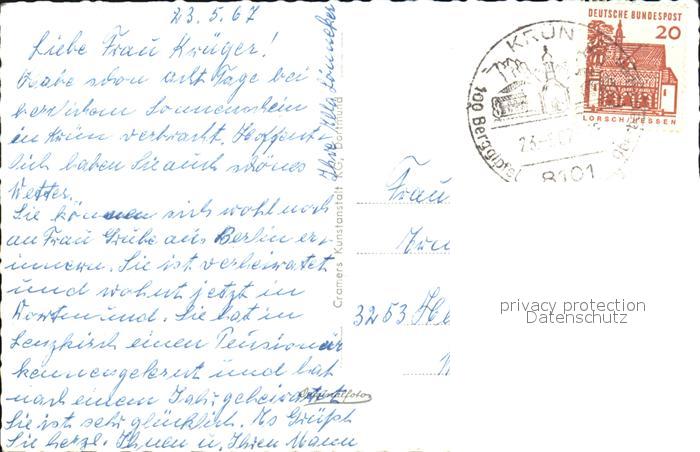 23.5.67
Liebe Frau Krüger!
Habe schon acht Tage bei
herrlichem Sonnenschein
in Krün verbracht. Hoffent-
lich haben Sie auch schönes
Wetter.
Sie können sich wohl noch
an Frau Grube aus Berlin er-
innern. Sie ist verheiratet
und wohnt jetzt in
Dortmund. Sie hat in
Lenzkirch einen Pensionär
kennengelernt und hat
nach einem Jahr geheiratet
Sie ist sehr glücklich. Es Grüßt
Sie herzl. Ihnen u. Ihren Mann
Ihre Hella
Cramers Kunstanstalt KG, Dortmund
Originalfoto
DEUTSCHE BUNDESPOST
20
LORSCH/HESSEN
KRÜN
100 Berggipfel
23.-5.67
8101
Frau
3253 Ha
privacy protection
Datenschutz